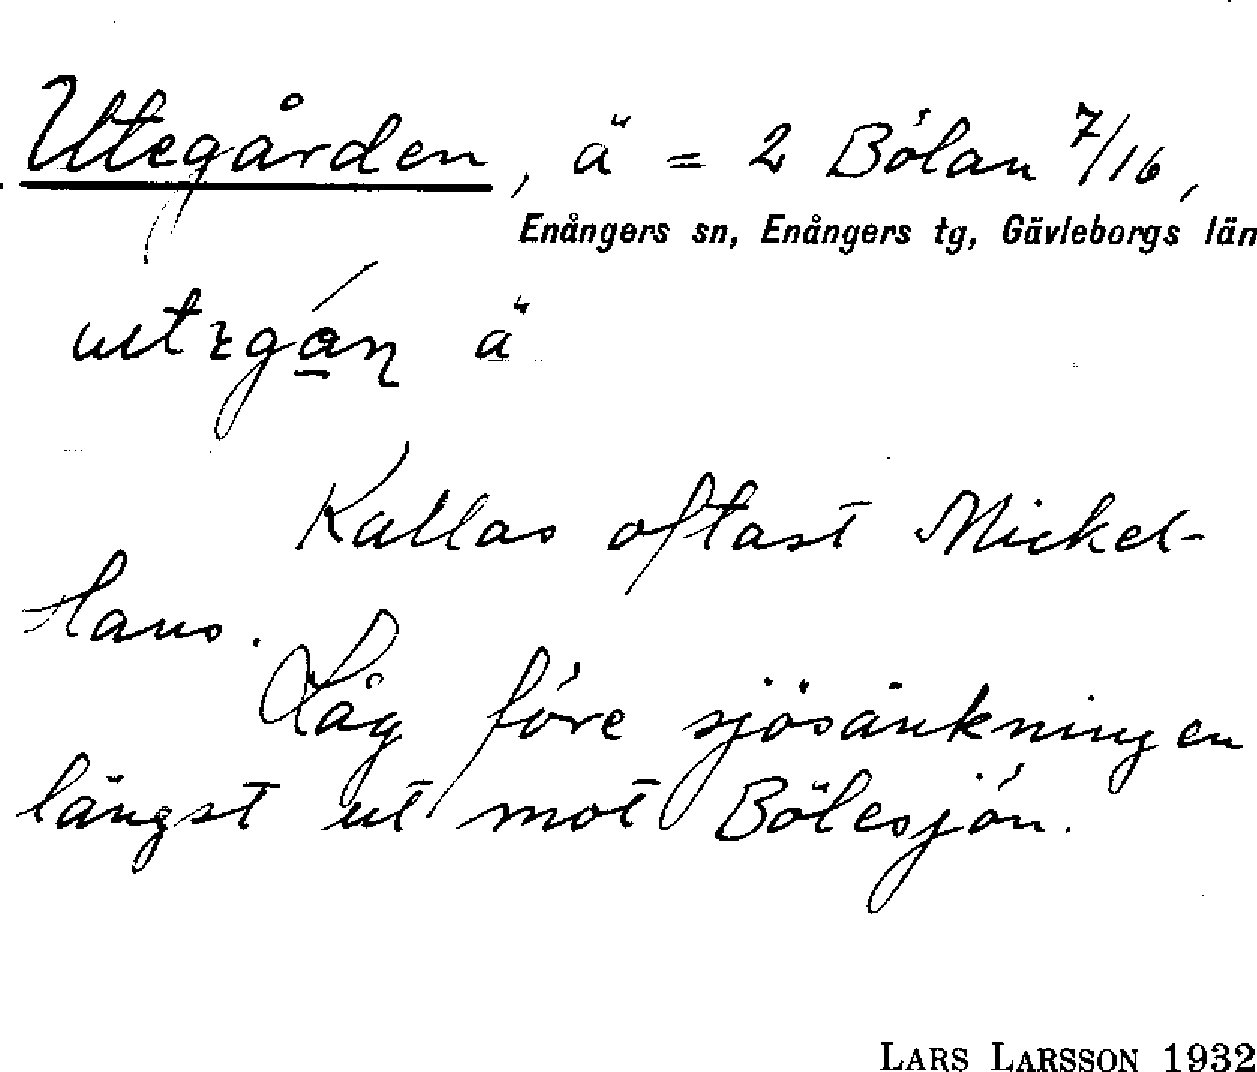 Utegården, ä = 2 Bölan 7/16,
Enångers sn, Enångers tg, Gävleborgs län
ä
Kallas oftast Mickel-
Låg före sjösänkningen
längst ut mot Bölesjön.
LARS LARSSON 1932